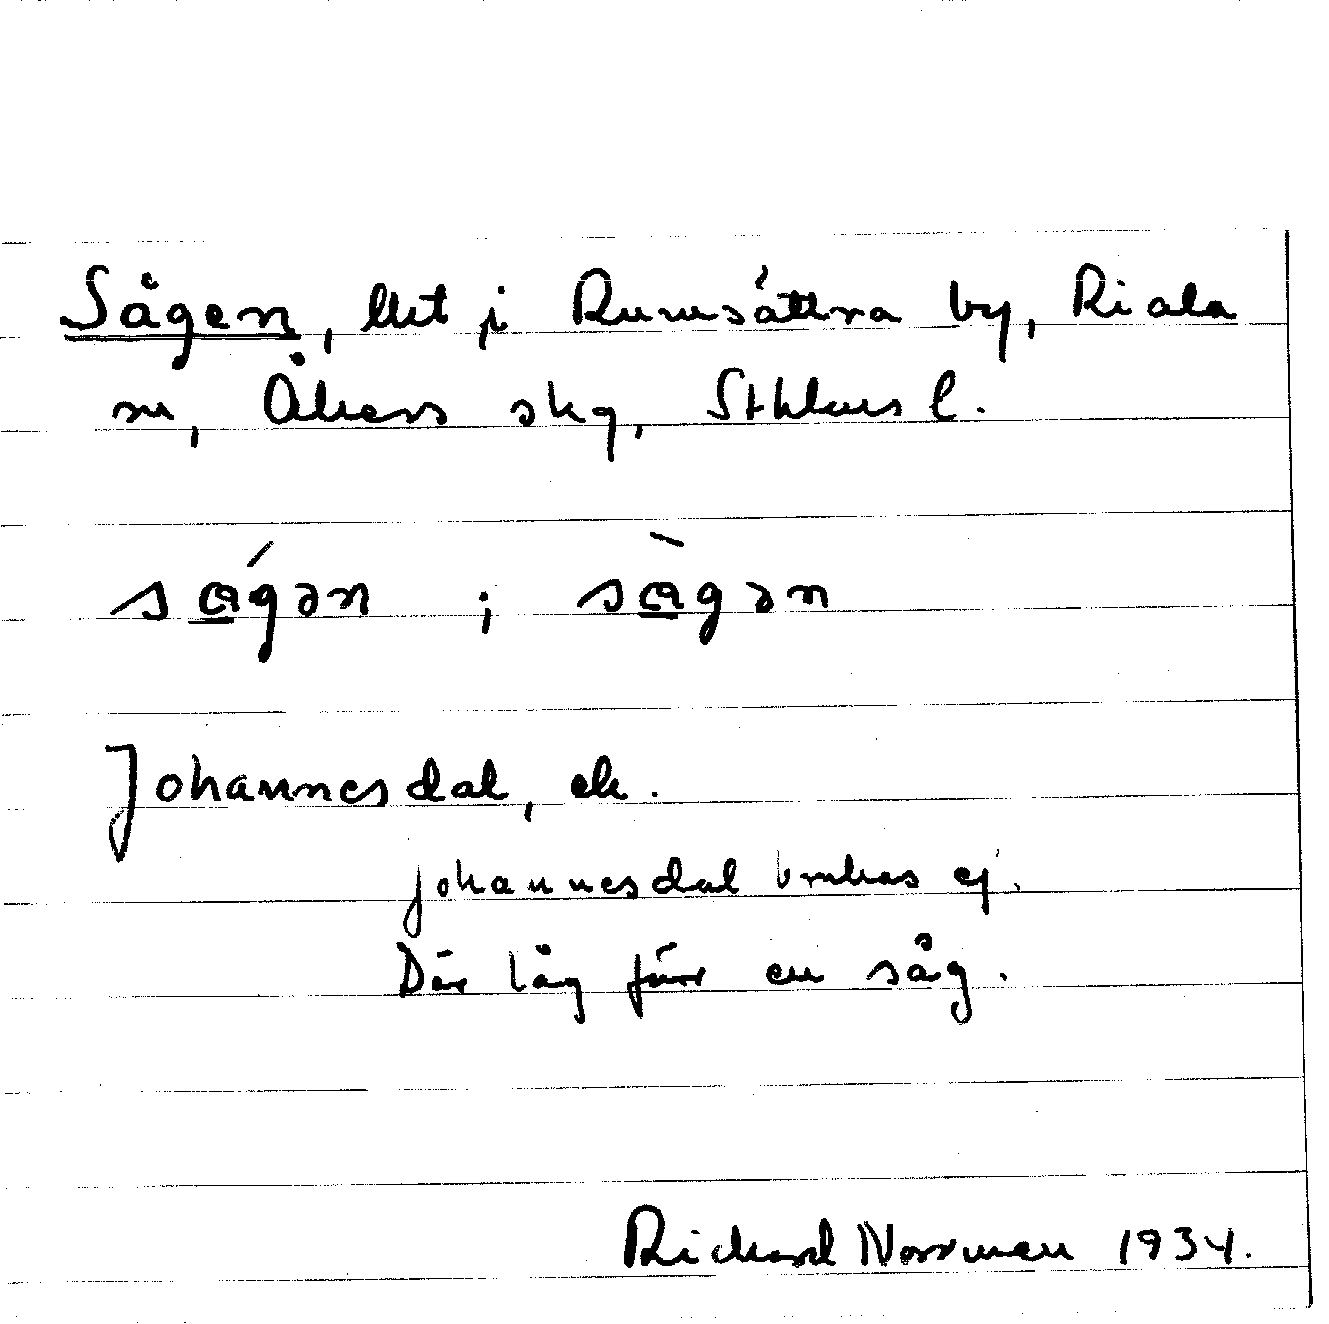 Sågen, lht i Rumsättra by, Riala
sn, Åkers skg, Sthlms l.
sɑ́gən ; sɑ̀gən
Johannesdal, ek.
Johannesdal brukas ej.
Där låg förr en såg.
Richard Norrman 1934.